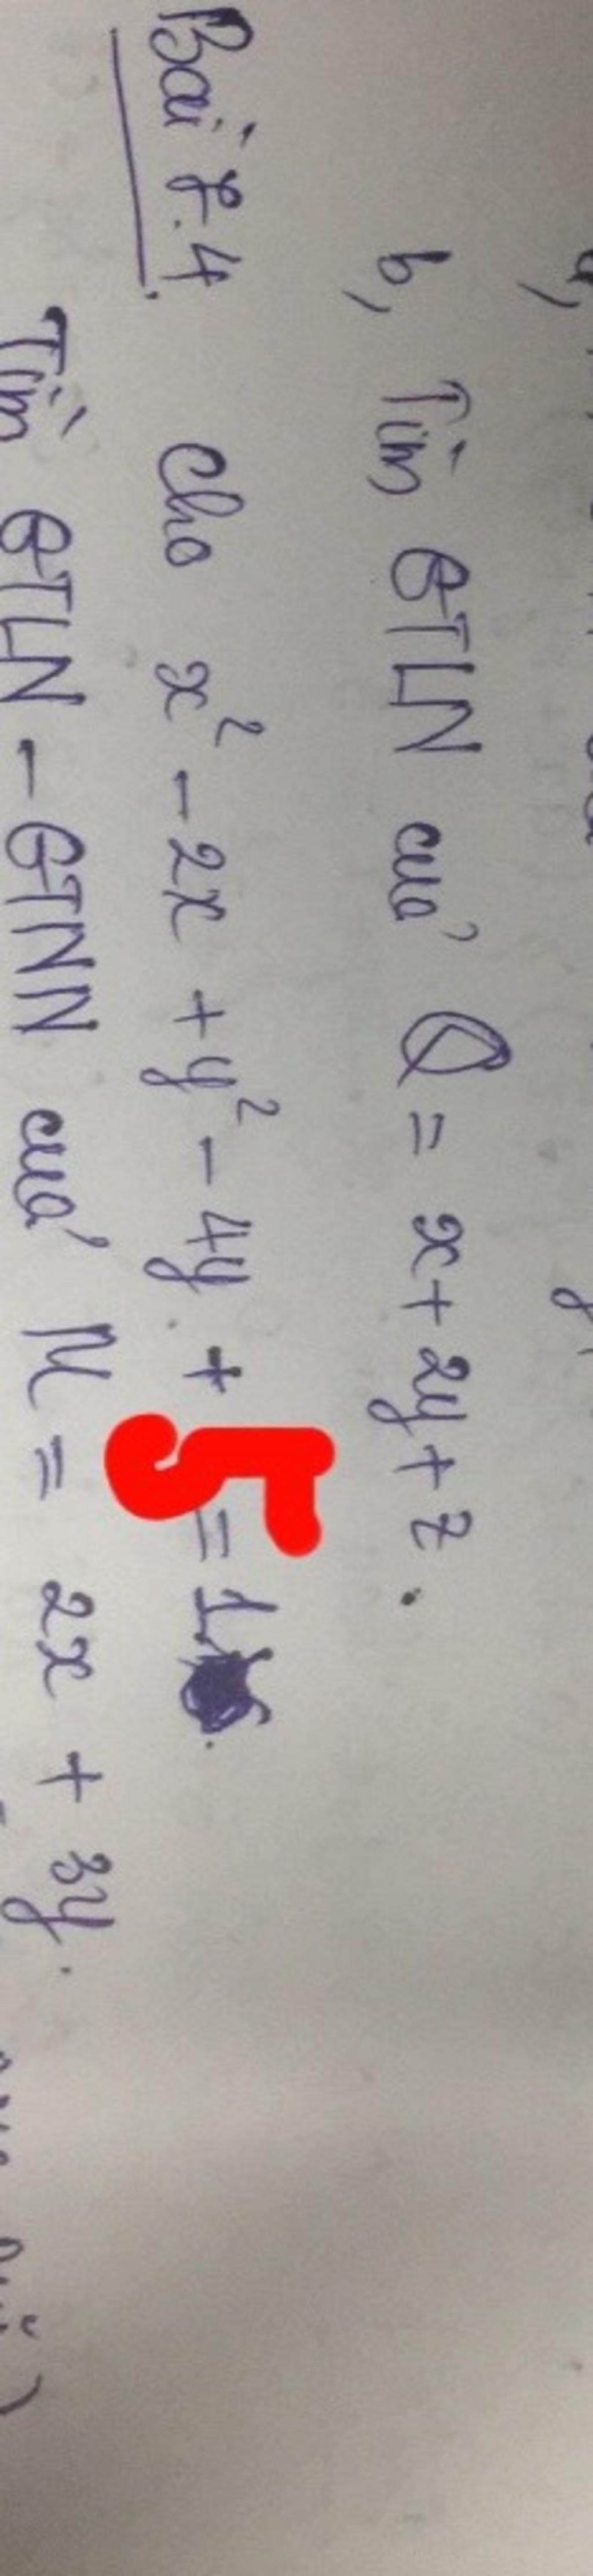 a,
b, Tìm GTLN của Q = x + 2y + z.
Bài 7.4. Cho x² - 2x + y² - 4y + 5 = 1.
Tìm GTLN - GTNN của M = 2x + 3y.